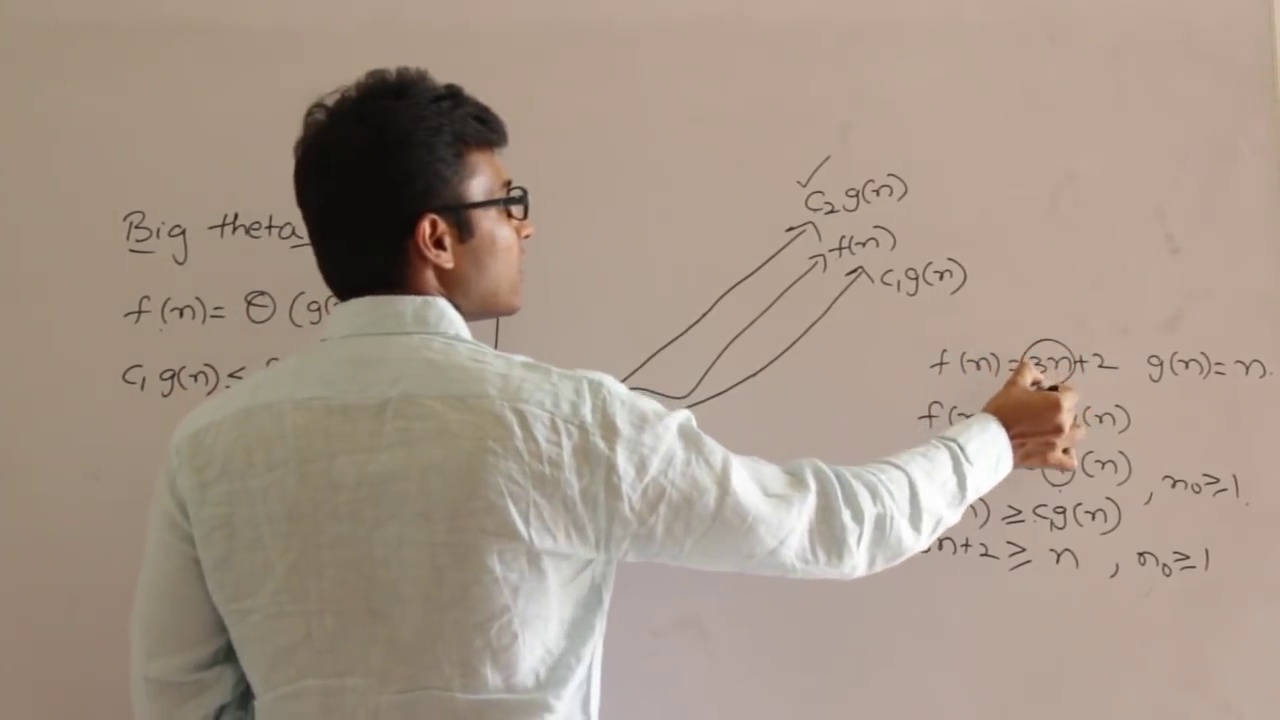 Big theta
f(n) = Θ (g(
c₁ g(n) ≤
c₂ g(n)
f(n)
c₁ g(n)
f(n) = 3n+2 g(n) = n.
(n)
(n) , n₀ ≥ 1.
) ≥ c₁g(n)
n+2 ≥ n , n₀ ≥ 1